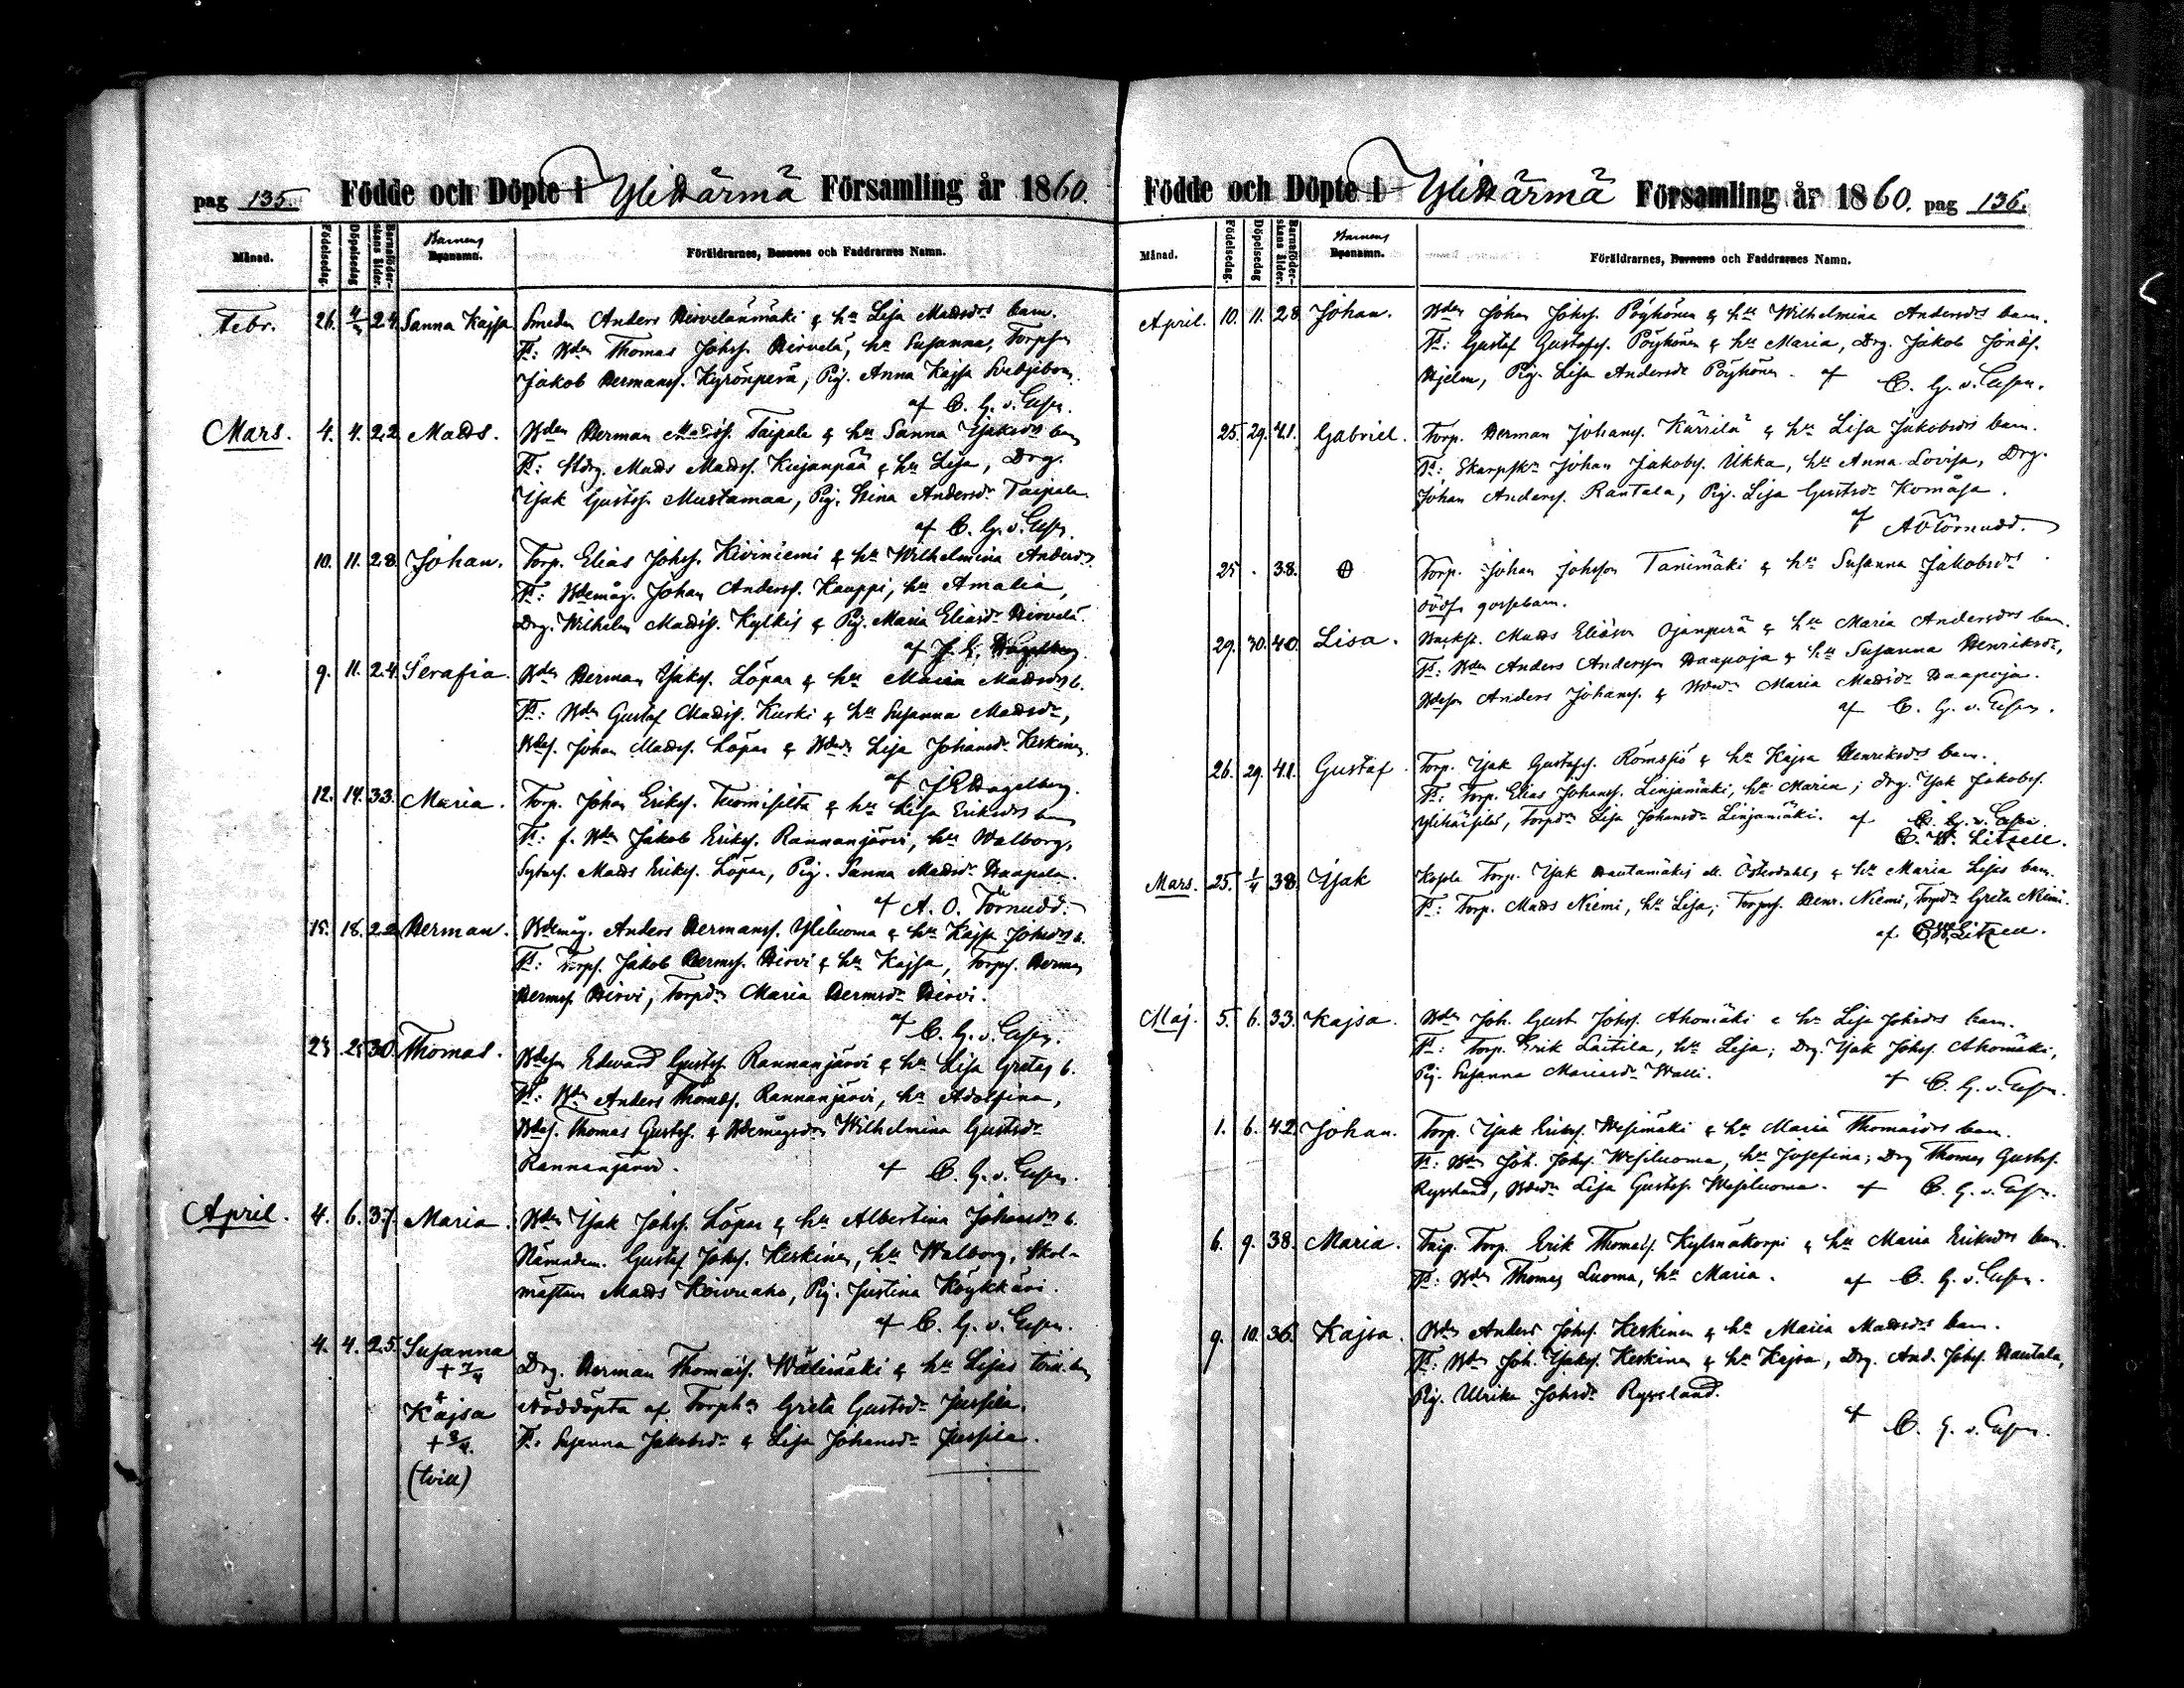 pag 135. Födde och Döpte i YliHärmä Församling år 1860.
Månad. Födelsedag. Döpelsedag Barnaföderskans ålder. Barnens Dpanamn. Föräldrarnes, Barnens och Faddrarnes Namn.
Febr. 26. 4/3 24. Sanna Kajsa Smeden Anders Hirvelänmäki & hu Lisa Madsdrs barn.
Ft: Bden Thomas Johsf. Hirvelä, hu Susanna, Torpson
Jakob Hermansf. Kyrönperä, Pig. Anna Kajsa
af C. G. v. Essen.
Mars. 4. 4. 22 Mads. Bden Herman Madsf. Taipale & hu Sanna Isaksdrs barn
Ft: Mads Madsf. Kujanpää & hu Lisa, Drg.
Isak Gustsf. Mustamaa, Pig. Stina Andersdr Taipale.
af C. G. v. Essen.
10. 11. 28. Johan. Torp. Elias Johsf. Kiviniemi & hu Wilhelmina Andersdrs.
Ft: Bdemåg. Johan Andersf. Kauppi, hu Amalia,
Drg. Wilhelm Madsf. Kylkis & Pig. Maria Eliasdr Hirvelä.
af J. E. Hagelberg.
9. 11. 24. Serafia. Bden Herman Isaksf. Löpar & hu Maria Madsdrs b.
Ft: Bden Gustaf Madsf. Kurki & hu Susanna Madsdr,
Bdes. Johan Madsf. Löpar & Bdedr Lisa Johansdr Keskinen.
af J E Hagelberg.
12. 14. 33. Maria. Torp. Johan Eriksf. Tuomisilta & hu Lisa Eriksdrs barn
Ft: f. Bden Jakob Eriksf. Rannanjärvi, hu Walborg,
Sytnesf. Mads Eriksf. Löpar, Pig. Sanna Madsdr Haapala.
af A. O. Törnudd.
15. 18. 22 Herman. Bdemåg. Anders Hermansf. Yliluoma & hu Kajsa Johsdrs b.
Ft: Torps. Jakob Hermsf. Hirvi & hu Kajsa, Torps. Herman
Hermsf. Hirvi, Torpdr Maria Hermsdr Hirvi.
af C. G. v. Essen.
23 25 30. Thomas. Bdeson Edward Gustsf. Rannanjärvi & hu Lisa Gretas b.
Ft: Bden Anders Thomasf. Rannanjärvi, hu Adolfina,
Bdes. Thomas Gustsf. & Bdemågdr Wilhelmina Gustsdr
Rannanjärvi. af C. G. v. Essen.
April. 4. 6. 37. Maria. Bden Isak Johsf. Löpar & hu Albertina Johansdrs b.
Nämndem. Gustaf Johsf. Keskinen, hu Walborg, Skol-
mästaren Mads Koivuaho, Pig. Justina Köykkäri.
af C. G. v. Essen.
4. 4. 25. Susanna
+ 7/4 Drg. Herman Thomasf. Wälimäki & hu Lisas tvill. barn
&
Kajsa Nöddöpta af Torphu Greta Gustsdr Jussila.
+ 8/4. Ft: Susanna Jakobsdr & Lisa Johansdr Jussila.
(tvill)
Födde och Döpte i YliHärmä Församling år 1860. pag 136.
Månad. Födelsedag. Döpelsedag Barnaföderskans ålder. Barnens Dpanamn. Föräldrarnes, Barnens och Faddrarnes Namn.
April. 10. 11. 28 Johan. Bden Johan Johsf. Pöyhönen & hu Wilhelmina Andersdrs barn.
Ft: Gustaf Gustafsf. Pöyhönen & hu Maria, Drg. Jakob Jonasf.
Hjelm, Pig. Lisa Andersdr Pöyhönen. af C. G. v. Essen.
25. 29. 41. Gabriel. Torp. Herman Johansf. Kärrilä & hu Lisa Jakobsdrs barn.
Ft: Skarpsk. Johan Jakobsf. Ukka, hu Anna Lovisa, Drg.
Johan Andersf. Rantala, Pig. Lisa Gustsdr Komåsa.
af A O Törnudd.
25 . 38. Torp. Johan Johsson Tanimäki & hu Susanna Jakobsdrs
dödf. gossebarn.
29. 30. 40. Lisa. Backst. Mads Eliasson Ojanperä & hu Maria Andersdrs barn.
Ft: Bden Anders Andersson Haapoja & hu Susanna Henriksdr,
Bdeson Anders Johansf. & Bdedr Maria Madsdr Haapoja.
af C. G. v. Essen.
26. 29. 41. Gustaf. Torp. Isak Gustafsf. Römssiö & hu Kajsa Henriksdrs barn.
Ft: Torp. Elias Johansf. Linjamäki, hu Maria; Drg. Isak Jakobsf.
Torpdr Lisa Johansdr Linjamäki. af C. G. v. Essen.
C. W. Litzell.
Mars. 25. 1/4 38. Isak Torp. Isak Hautamäkis ell. Österdahls & hu Maria Lisas barn.
Ft: Torp. Mads Niemi, hu Lisa; Torps. Henr. Niemi, Torpdr Greta Niemi.
af C W Litzell.
Maj. 5. 6. 33. Kajsa. Bden Joh. Gust Johsf. Ahomäki & hu Lisa Johsdrs barn.
Ft: Torp. Erik Laitila, hu Lisa; Drg. Isak Johsf. Ahomäki,
Pig. Susanna Mariasdr Walli. af C. G. v. Essen.
1. 6. 42. Johan. Torp. Isak Eriksf. Wesimäki & hu Maria Thomasdrs barn.
Ft: Bden Joh. Johsf. Wesiluoma, hu Josefina; Drg Thomas Gustsf.
Ryssland, Bdedr Lisa Gustsf. Wesiluoma. af C. G. v. Essen.
6. 9. 38. Maria. Torp. Erik Thomasf. Kylmäkorpi & hu Maria Eriksdrs barn.
Ft: Bden Thomas Luoma, hu Maria. af C. G. v. Essen.
9. 10. 36. Kajsa. Bden Anders Johsf. Keskinen & hu Maria Madsdrs barn.
Ft: Bden Joh. Isaksf. Keskinen & hu Kajsa, Drg. And. Johsf. Hautala,
Pig. Ulrika Johsdr Ryssland.
af C. G. v. Essen.